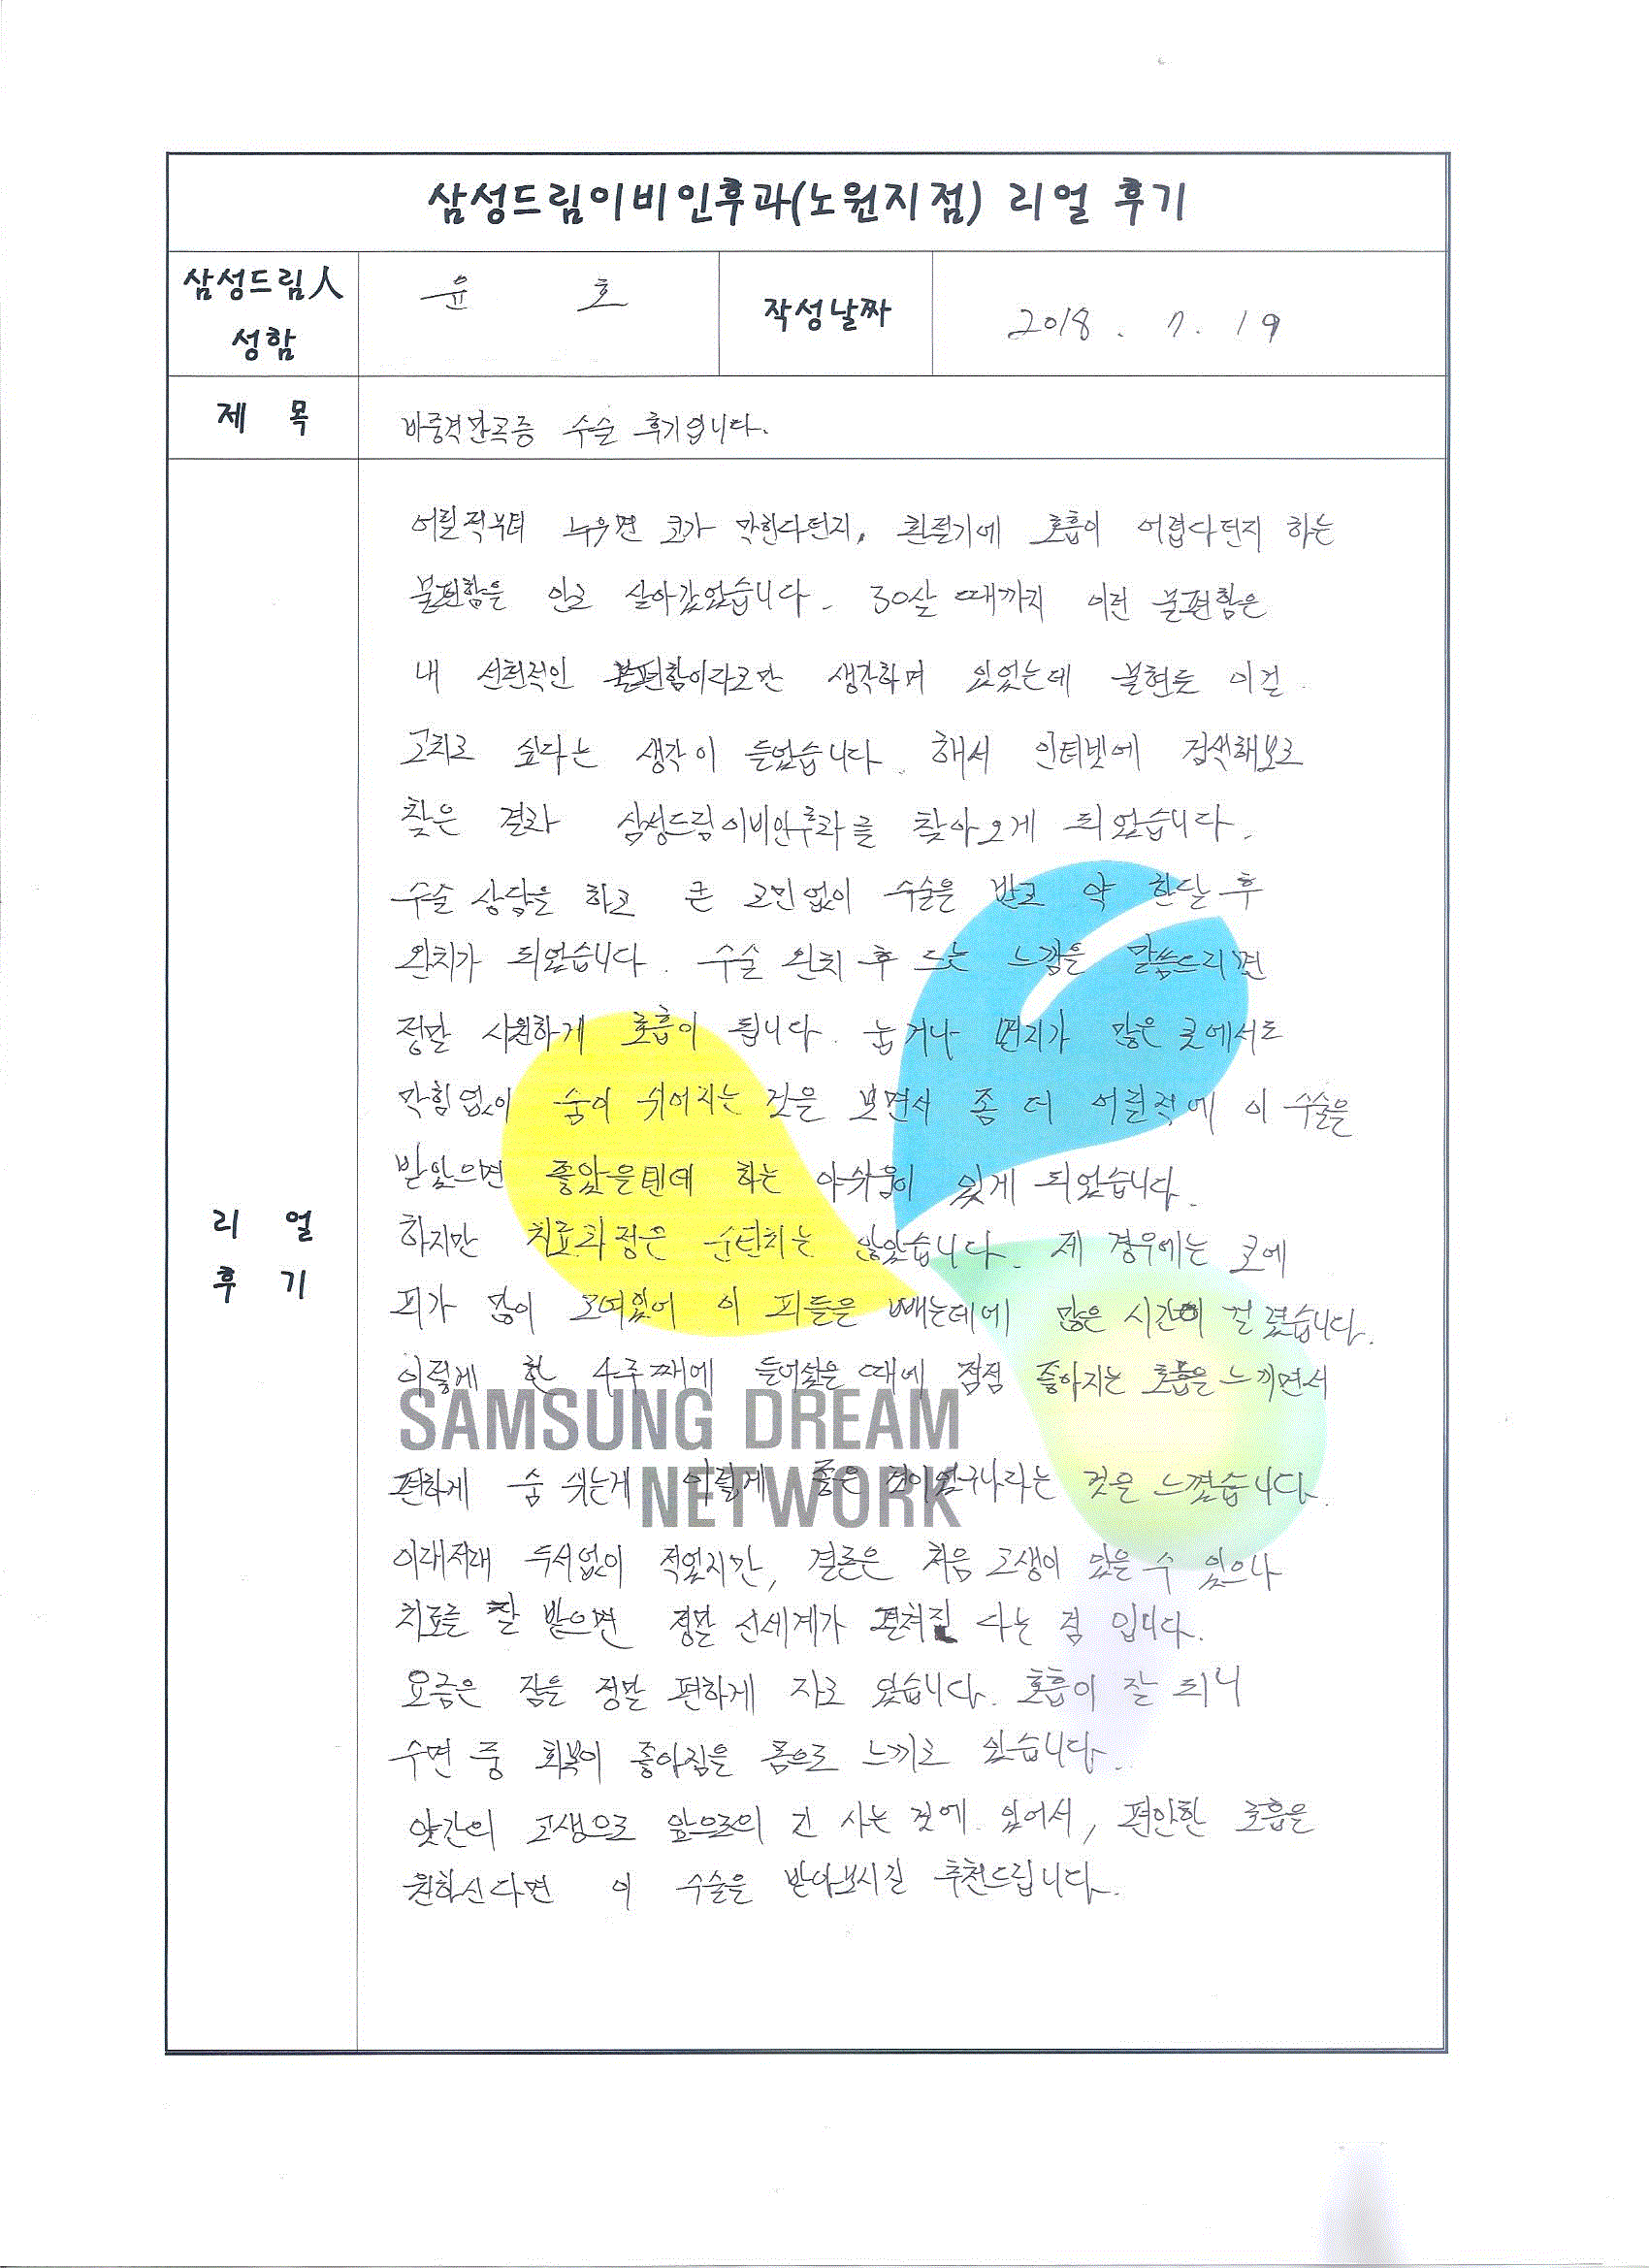 삼성드림이비인후과(노원지점) 리얼 후기
삼성드림人
성함
윤 호
작성날짜
2018. 7. 19
제 목
비중격만곡증 수술 후기입니다.
리 얼
후 기
어릴적부터 누우면 코가 막힌다던지, 환절기에 호흡이 어렵다던지 하는
불편함을 안고 살아갔었습니다. 30살 때까지 이런 불편함은
내 선천적인 불편함이라고만 생각하며 있었는데 불현듯 이걸
고치고 싶다는 생각이 들었습니다. 해서 인터넷에 검색해보고
찾은 결과 삼성드림이비인후과를 찾아오게 되었습니다.
수술 상담을 하고 큰 고민없이 수술을 받고 약 한달 후
완치가 되었습니다. 수술 완치 후 드는 느낌을 말씀드리면
정말 시원하게 호흡이 됩니다. 눕거나 먼지가 많은 곳에서도
막힘없이 숨이 쉬어지는 것을 보면서 좀 더 어릴적에 이 수술을
받았으면 좋았을텐데 하는 아쉬움이 있게 되었습니다.
하지만 치료과정은 순탄치는 않았습니다. 제 경우에는 코에
피가 많이 고여있어 이 피들을 빼는데에 많은 시간이 걸렸습니다.
이렇게 한 4주째에 들어섰을 때에 점점 좋아지는 호흡을 느끼면서
SAMSUNG DREAM
편하게 숨 쉬는게 이렇게 좋은 것이었구나라는 것을 느꼈습니다.
NETWORK
이래저래 두서없이 적었지만, 결론은 처음 고생이 있을 수 있으나
치료를 잘 받으면 정말 신세계가 펼쳐진다는 점 입니다.
요즘은 잠을 정말 편하게 자고 있습니다. 호흡이 잘 되니
수면 중 회복이 좋아짐을 몸으로 느끼고 있습니다.
약간의 고생으로 앞으로의 긴 사는 것에 있어서, 편안한 호흡을
원하신다면 이 수술을 받아보시길 추천드립니다.